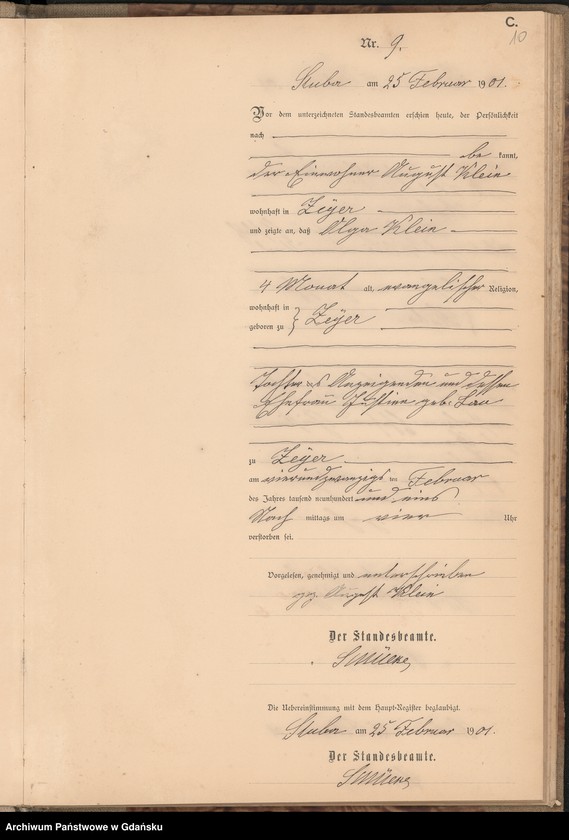 C.
10
Nr. 9.
Stuba am 25 Februar 1901.
Vor dem unterzeichneten Standesbeamten erschien heute, der Persönlichkeit
nach
be kannt,
der Einwohner August Klein
wohnhaft in Zeÿer
und zeigte an, daß Olga Klein
4 Monat alt, evangelischer Religion,
wohnhaft in
geboren zu } Zeÿer
Tochter des Anzeigenden und dessen
Ehefrau Justine geb: Lau
zu Zeÿer
am vierundzwanzigsten Februar
des Jahres tausend neunhundert und eins
Nach mittags um vier Uhr
verstorben sei.
Vorgelesen, genehmigt und unterschrieben
gez. August Klein
Der Standesbeamte.
Die Uebereinstimmung mit dem Haupt-Register beglaubigt.
Stuba am 25 Februar 1901.
Der Standesbeamte.
Archiwum Państwowe w Gdańsku